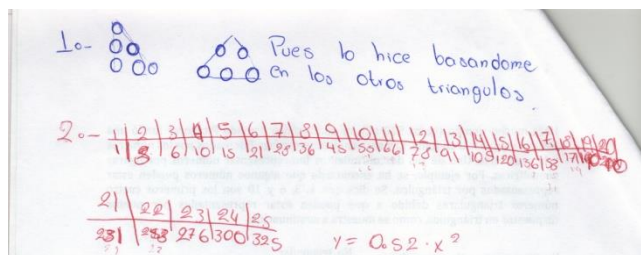 1.- Pues lo hice basandome
en los otros triangulos.
2.- 1 2 3 4 5 6 7 8 9 10 11 12 13 14 15 16 17 18 19 20
1 3 6 10 15 21 28 36 45 55 66 78 91 105 120 136 171
21 22 23 24 25
231 276 300 325 y = 0.52 · x²